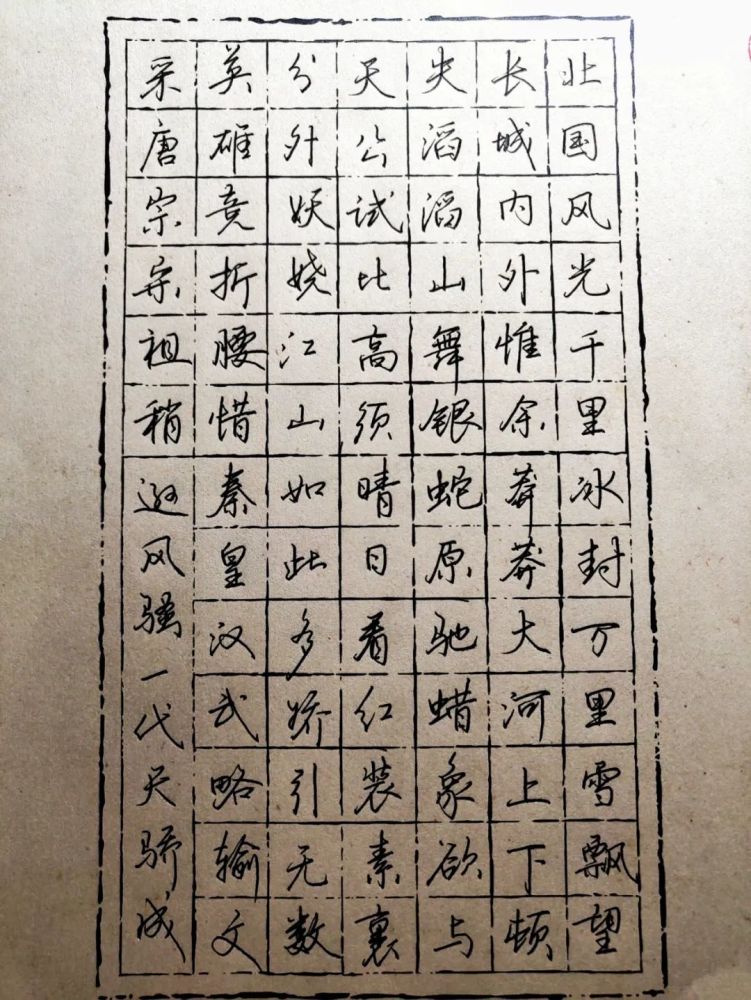 北国风光千里冰封万里雪飘望
长城内外惟余莽莽大河上下顿
失滔滔山舞银蛇原驰蜡象欲与
天公试比高须晴日看红装素裹
分外妖娆江山如此多娇引无数
英雄竞折腰惜秦皇汉武略输文
采唐宗宋祖稍逊风骚一代天骄成